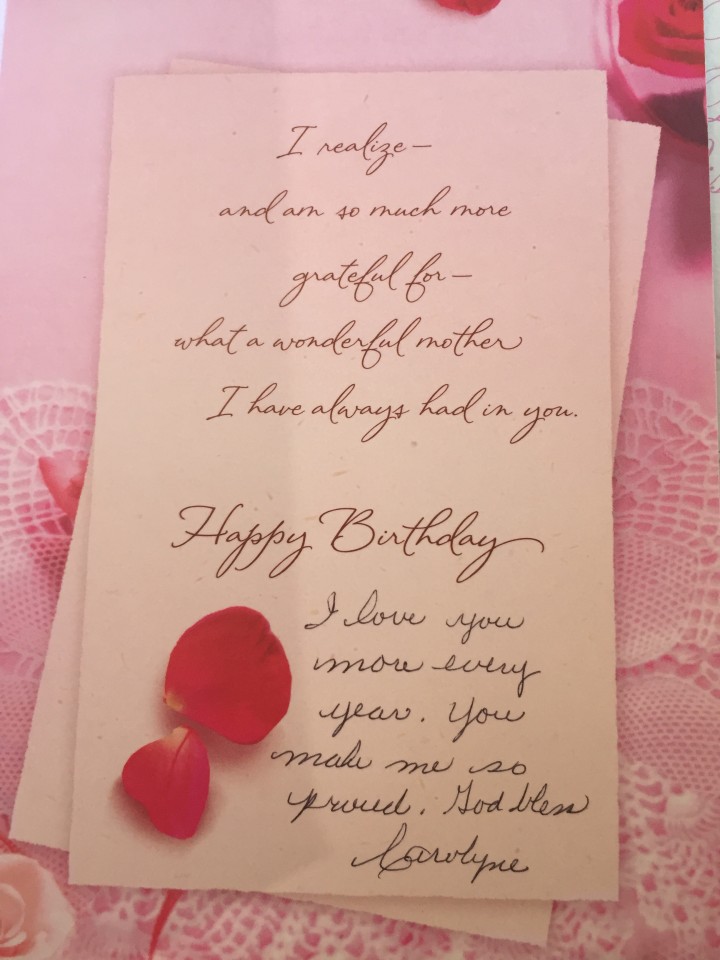 I realize—
and am so much more
grateful for—
what a wonderful mother
I have always had in you.
Happy Birthday
I love you
more every
year. You
make me so
proud. God bless
Carolyne